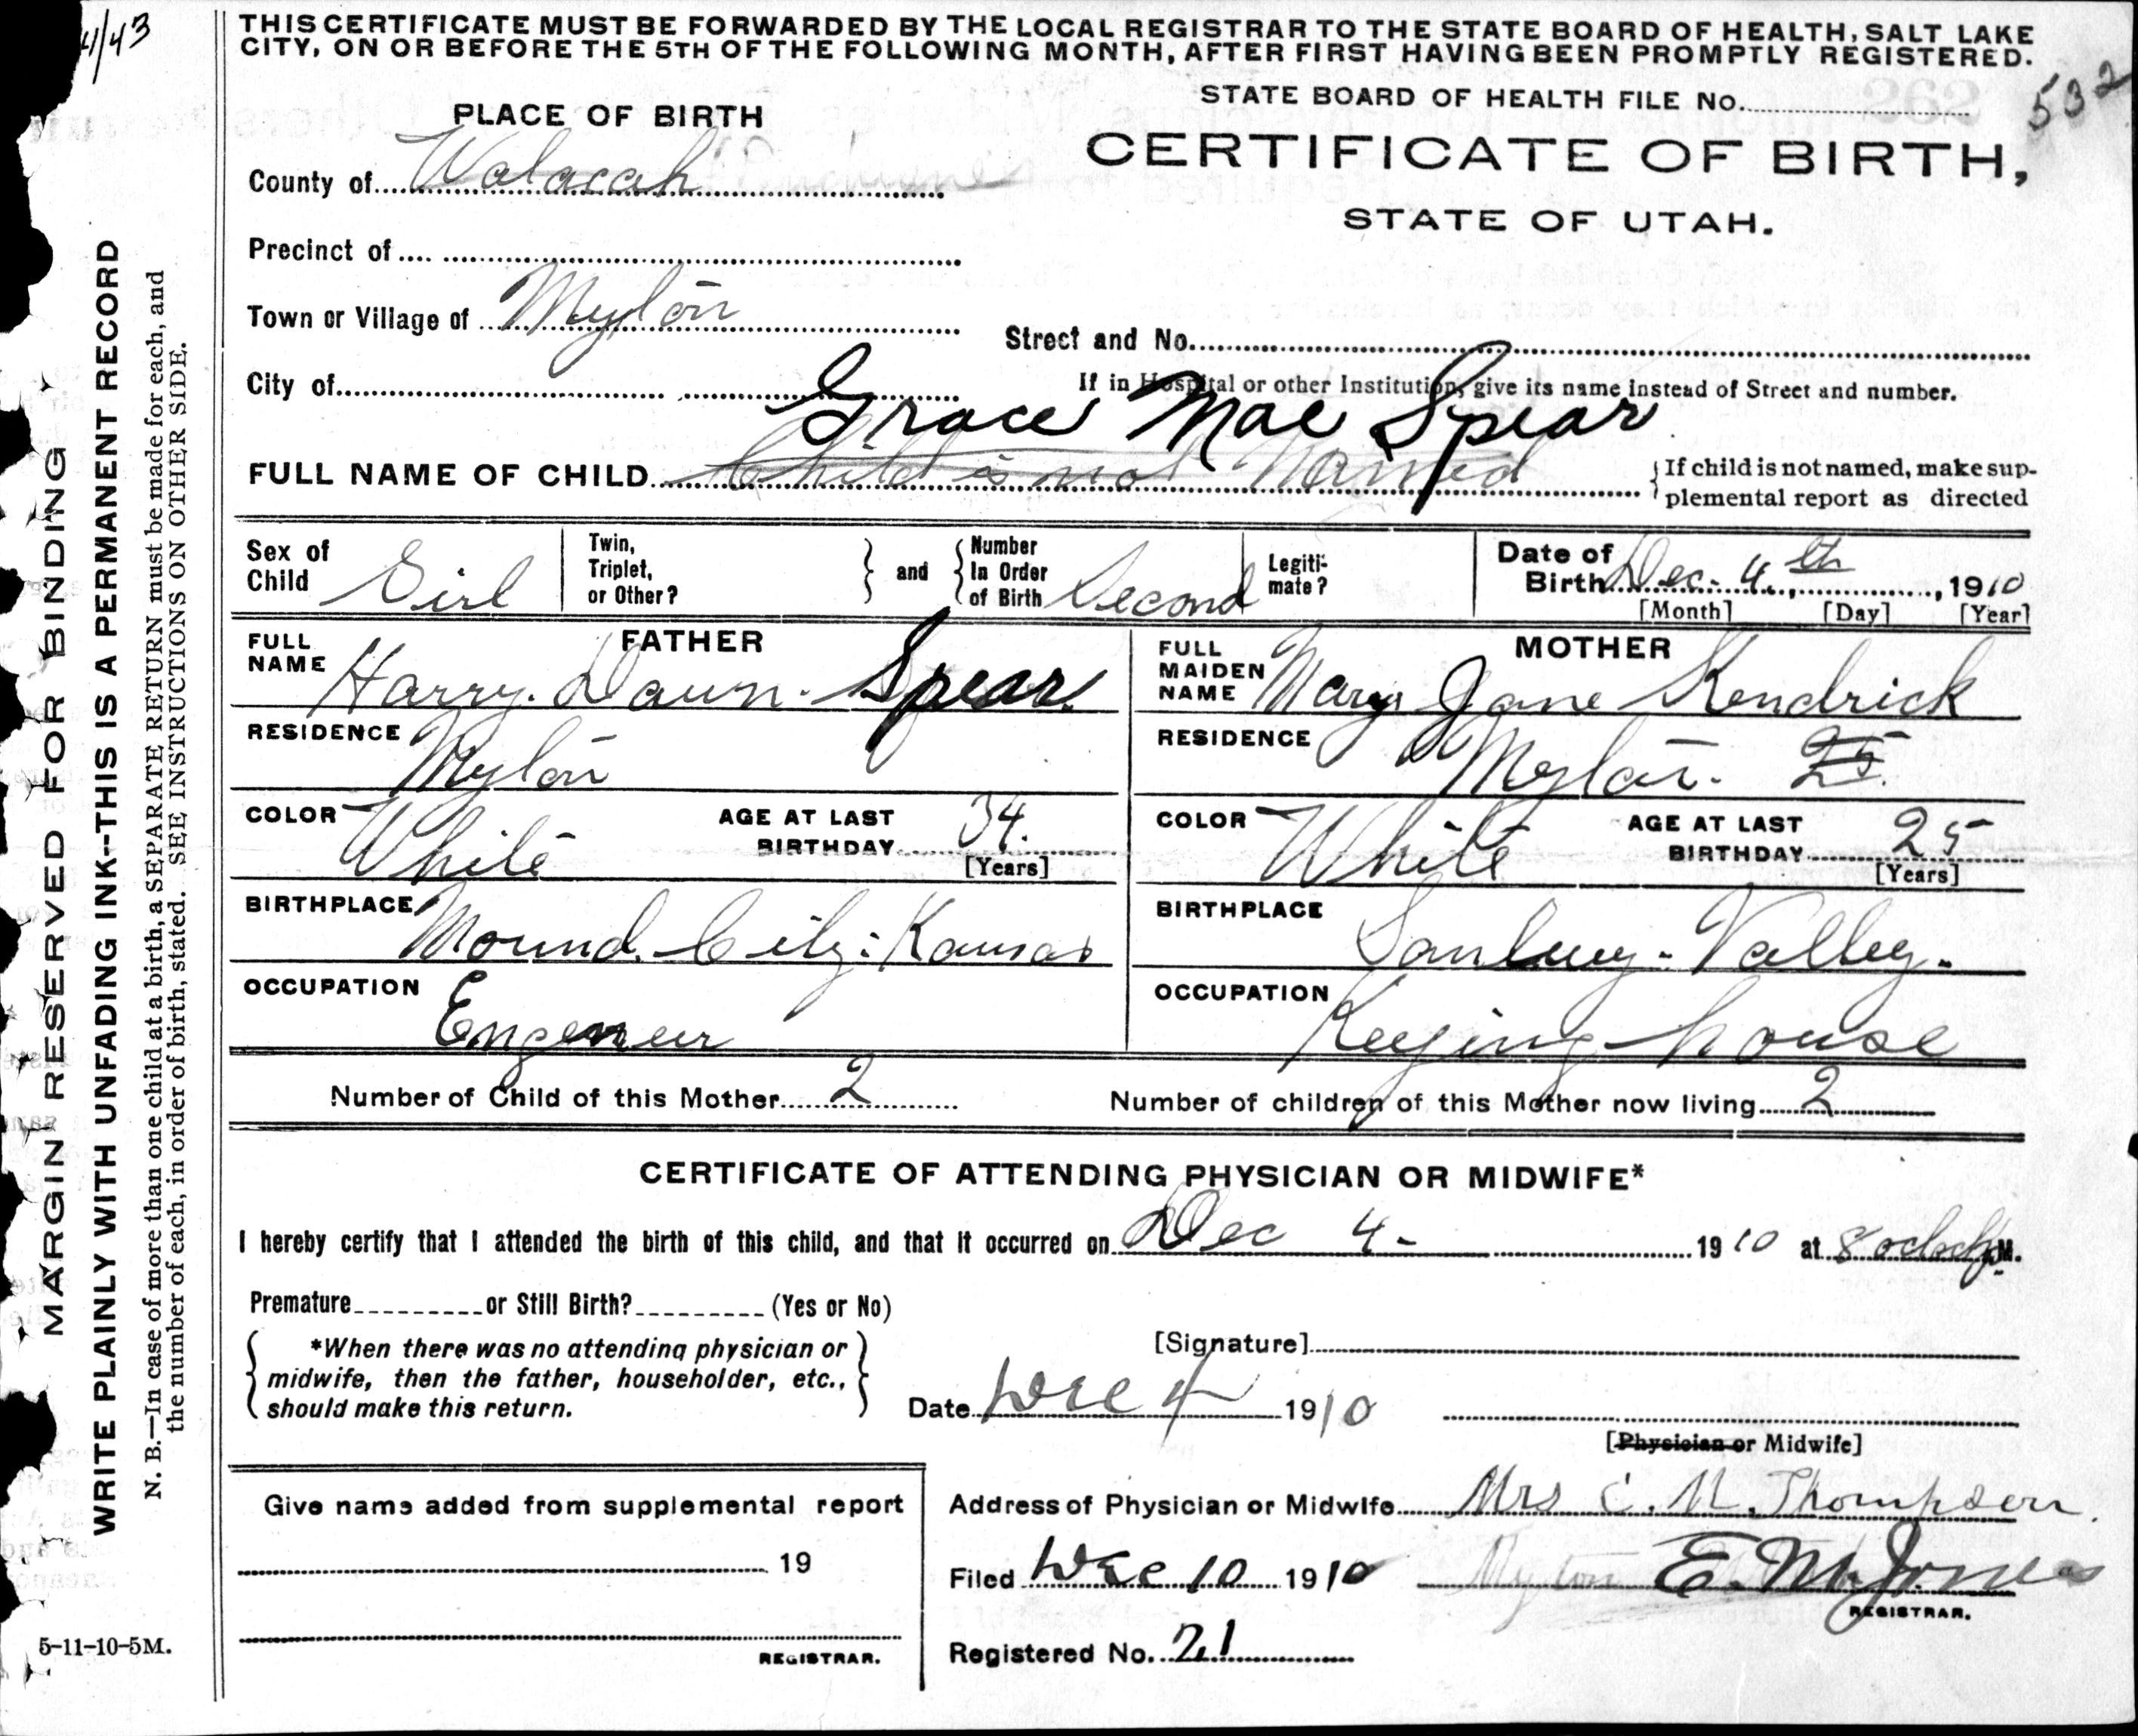 4/43
THIS CERTIFICATE MUST BE FORWARDED BY THE LOCAL REGISTRAR TO THE STATE BOARD OF HEALTH, SALT LAKE
CITY, ON OR BEFORE THE 5TH OF THE FOLLOWING MONTH, AFTER FIRST HAVING BEEN PROMPTLY REGISTERED.
STATE BOARD OF HEALTH FILE No. 532
PLACE OF BIRTH
CERTIFICATE OF BIRTH,
STATE OF UTAH.
County of Walacah
Precinct of
Town or Village of Myton
Street and No.
City of
If in Hospital or other Institution, give its name instead of Street and number.
Grace Mae Spear
FULL NAME OF CHILD Child is not Named
If child is not named, make sup-
plemental report as directed
Sex of Child Girl
Twin, Triplet, or Other?
and
Number In Order of Birth Second
Legiti- mate?
Date of Birth Dec. 4.th, 1910
[Month] [Day] [Year]
FATHER
FULL NAME Harry. Daun. Spear.
RESIDENCE Myton
COLOR White
AGE AT LAST BIRTHDAY 34.
[Years]
BIRTHPLACE Mound. City: Kansas
OCCUPATION Engeneur
MOTHER
FULL MAIDEN NAME Mary Jane Kendrick
RESIDENCE Myton. 25
COLOR White
AGE AT LAST BIRTHDAY 25
[Years]
BIRTHPLACE Valley.
OCCUPATION Keeping house
Number of Child of this Mother 2
Number of children of this Mother now living 2
CERTIFICATE OF ATTENDING PHYSICIAN OR MIDWIFE*
I hereby certify that I attended the birth of this child, and that it occurred on Dec 4- 1910 at 8 oclock M.
Premature or Still Birth? (Yes or No)
*When there was no attending physician or
midwife, then the father, householder, etc.,
should make this return.
[Signature]
Date Dec 4 1910
[Physician or Midwife]
Give name added from supplemental report
19
REGISTRAR.
Address of Physician or Midwife Mrs C. M. Thompson.
Myton
Filed Dec 10 1910 E. M. Jones
REGISTRAR.
Registered No. 21
5-11-10-5M.
MARGIN RESERVED FOR BINDING
WRITE PLAINLY WITH UNFADING INK--THIS IS A PERMANENT RECORD
N. B.—In case of more than one child at a birth, a SEPARATE RETURN must be made for each, and
the number of each, in order of birth, stated. SEE INSTRUCTIONS ON OTHER SIDE.